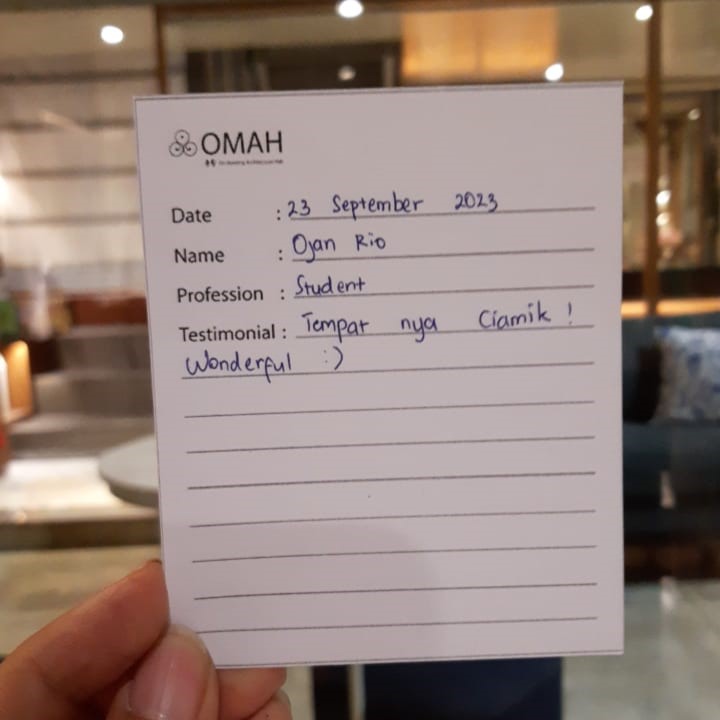 OMAH
Date : 23 September 2023
Name : Ojan Rio
Profession : Student
Testimonial : Tempat nya Ciamik !
Wonderful :)